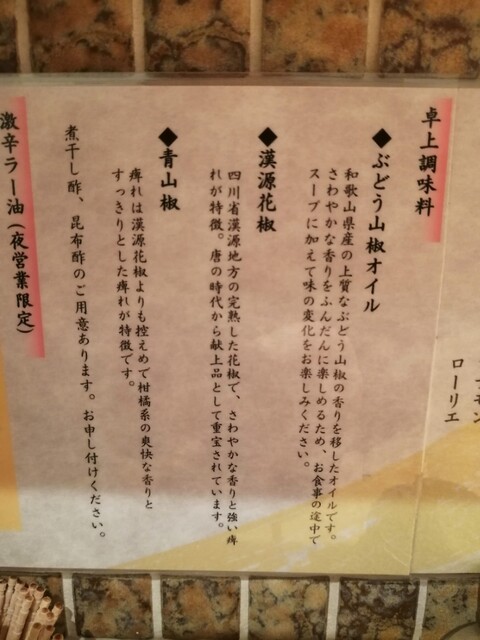 ローリエ
卓上調味料
◆ぶどう山椒オイル
和歌山県産の上質なぶどう山椒の香りを移したオイルです。
さわやかな香りをふんだんに楽しめるため、お食事の途中で
スープに加えて味の変化をお楽しみください。
◆漢源花椒
四川省漢源地方の完熟した花椒で、さわやかな香りと強い痺
れが特徴。唐の時代から献上品として重宝されています。
◆青山椒
痺れは漢源花椒よりも控えめで柑橘系の爽快な香りと
すっきりとした痺れが特徴です。
煮干し酢、昆布酢のご用意あります。お申し付けください。
激辛ラー油(夜営業限定)